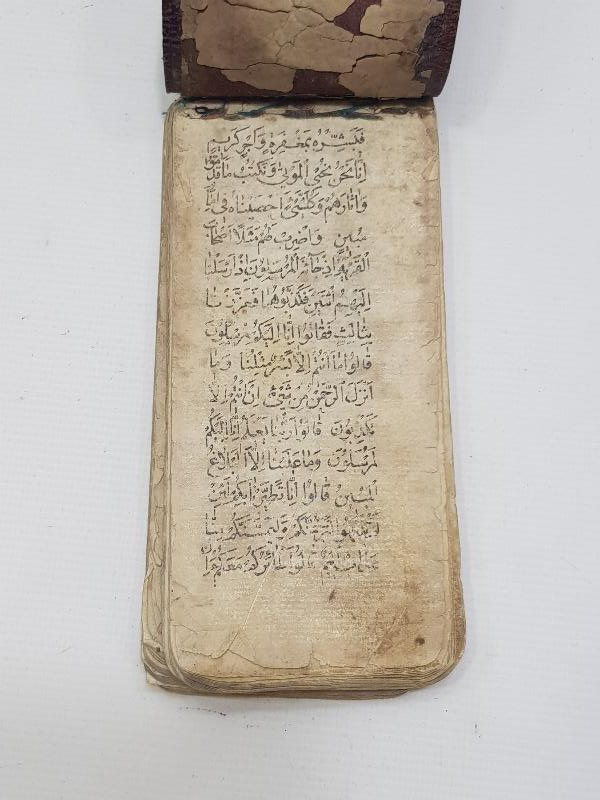 فَبَشِّرْهُ بِمَغْفِرَةٍ وَأَجْرٍ كَرِيمٍ
إِنَّا نَحْنُ نُحْيِي الْمَوْتَىٰ وَنَكْتُبُ مَا قَدَّمُوا
وَآثَارَهُمْ وَكُلَّ شَيْءٍ أَحْصَيْنَاهُ فِي إِمَامٍ
مُبِينٍ وَاضْرِبْ لَهُمْ مَثَلًا أَصْحَابَ
الْقَرْيَةِ إِذْ جَاءَهَا الْمُرْسَلُونَ إِذْ أَرْسَلْنَا
إِلَيْهِمُ اثْنَيْنِ فَكَذَّبُوهُمَا فَعَزَّزْنَا
بِثَالِثٍ فَقَالُوا إِنَّا إِلَيْكُمْ مُرْسَلُونَ
قَالُوا مَا أَنْتُمْ إِلَّا بَشَرٌ مِثْلُنَا وَمَا
أَنْزَلَ الرَّحْمَٰنُ مِنْ شَيْءٍ إِنْ أَنْتُمْ إِلَّا
تَكْذِبُونَ قَالُوا رَبُّنَا يَعْلَمُ إِنَّا إِلَيْكُمْ
لَمُرْسَلُونَ وَمَا عَلَيْنَا إِلَّا الْبَلَاغُ
الْمُبِينُ قَالُوا إِنَّا تَطَيَّرْنَا بِكُمْ لَئِنْ
لَمْ تَنْتَهُوا لَنَرْجُمَنَّكُمْ وَلَيَمَسَّنَّكُمْ مِنَّا
عَذَابٌ أَلِيمٌ قَالُوا طَائِرُكُمْ مَعَكُمْ